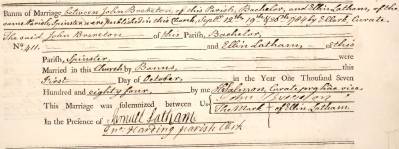 Banns of Marriage between John Brereton, of this Parish, Bachelor, and Ellin Latham, of the
same Parish, Spinster were published in this Church, Septr. 12th 19th & 26th 1784 by Clerk, Curate.
The said John Brereton of this Parish, Bachelor,
No. 411. and Ellin Latham, of this
Parish, Spinster were
Married in this Church by Banns
First Day of October in the Year One Thousand Seven
Hundred and eighty four by me Curate
This Marriage was solemnized between Us John Brereton
The Mark + of Ellin Latham.
In the Presence of Arnold Latham
Wm. Harting parish Clerk